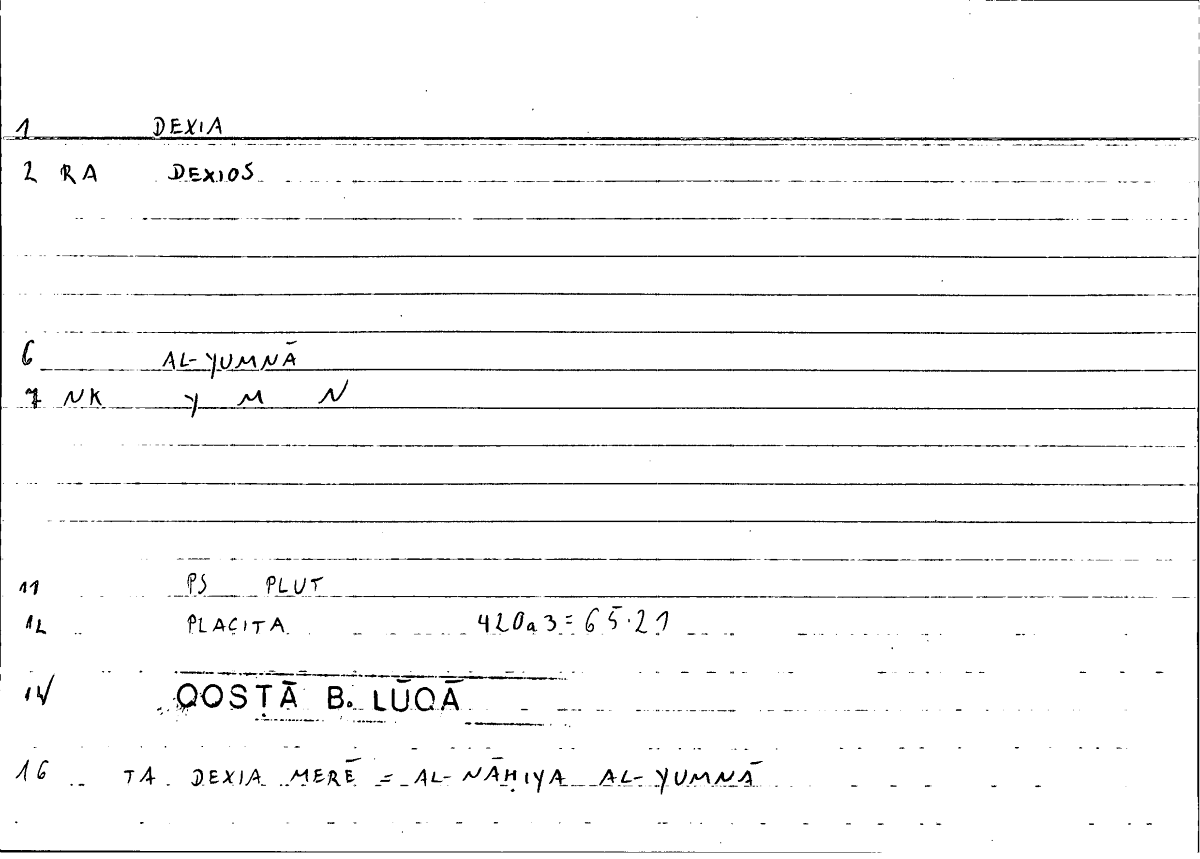 1 DEXIA
2 RA DEXIOS
6 AL-YUMNĀ
7 NK Y M N
11 PS PLUT
12 PLACITA 420a3=65.21
14 QOSṬĀ B. LŪQĀ
16 TA DEXIA MERĒ = AL-NĀḤIYA AL-YUMNĀ